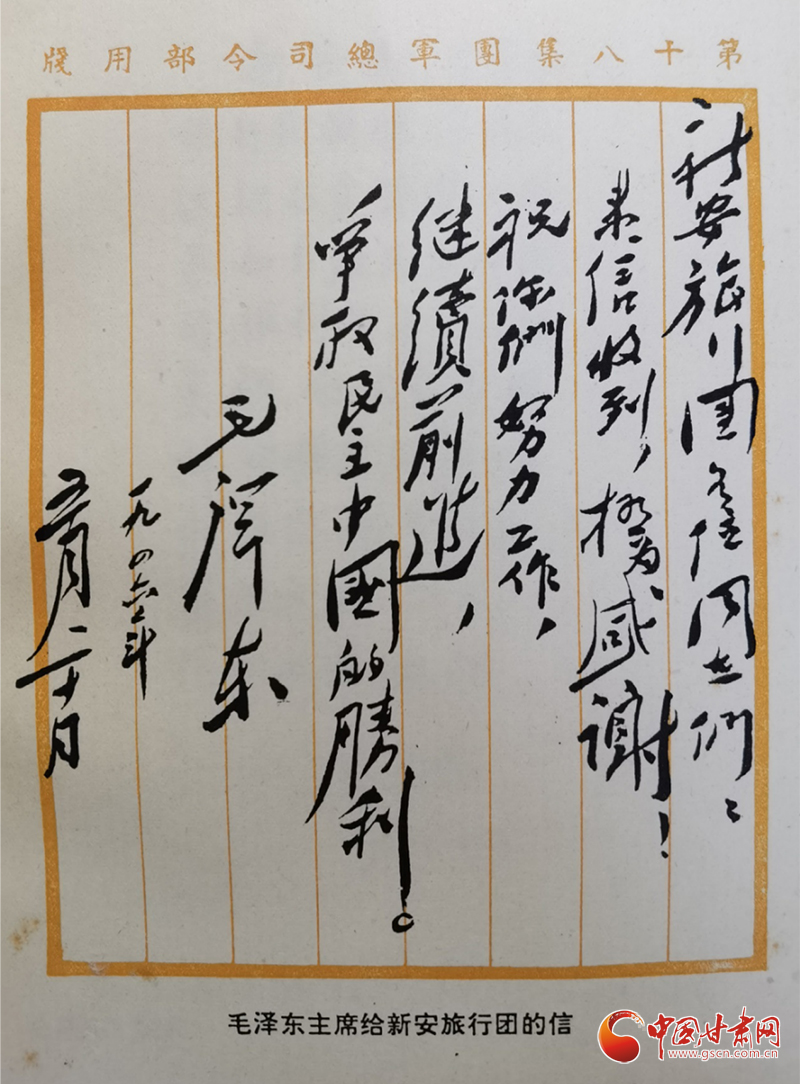 第十八集團軍總司令部用牋
新安旅行團各位同志們：
来信收到，極為感谢！
祝你們努力工作，
继續前進，
爭取民主中國的勝利。
毛澤东
一九四六年
五月二十日
毛泽东主席给新安旅行团的信
中国甘肃网
www.gscn.com.cn